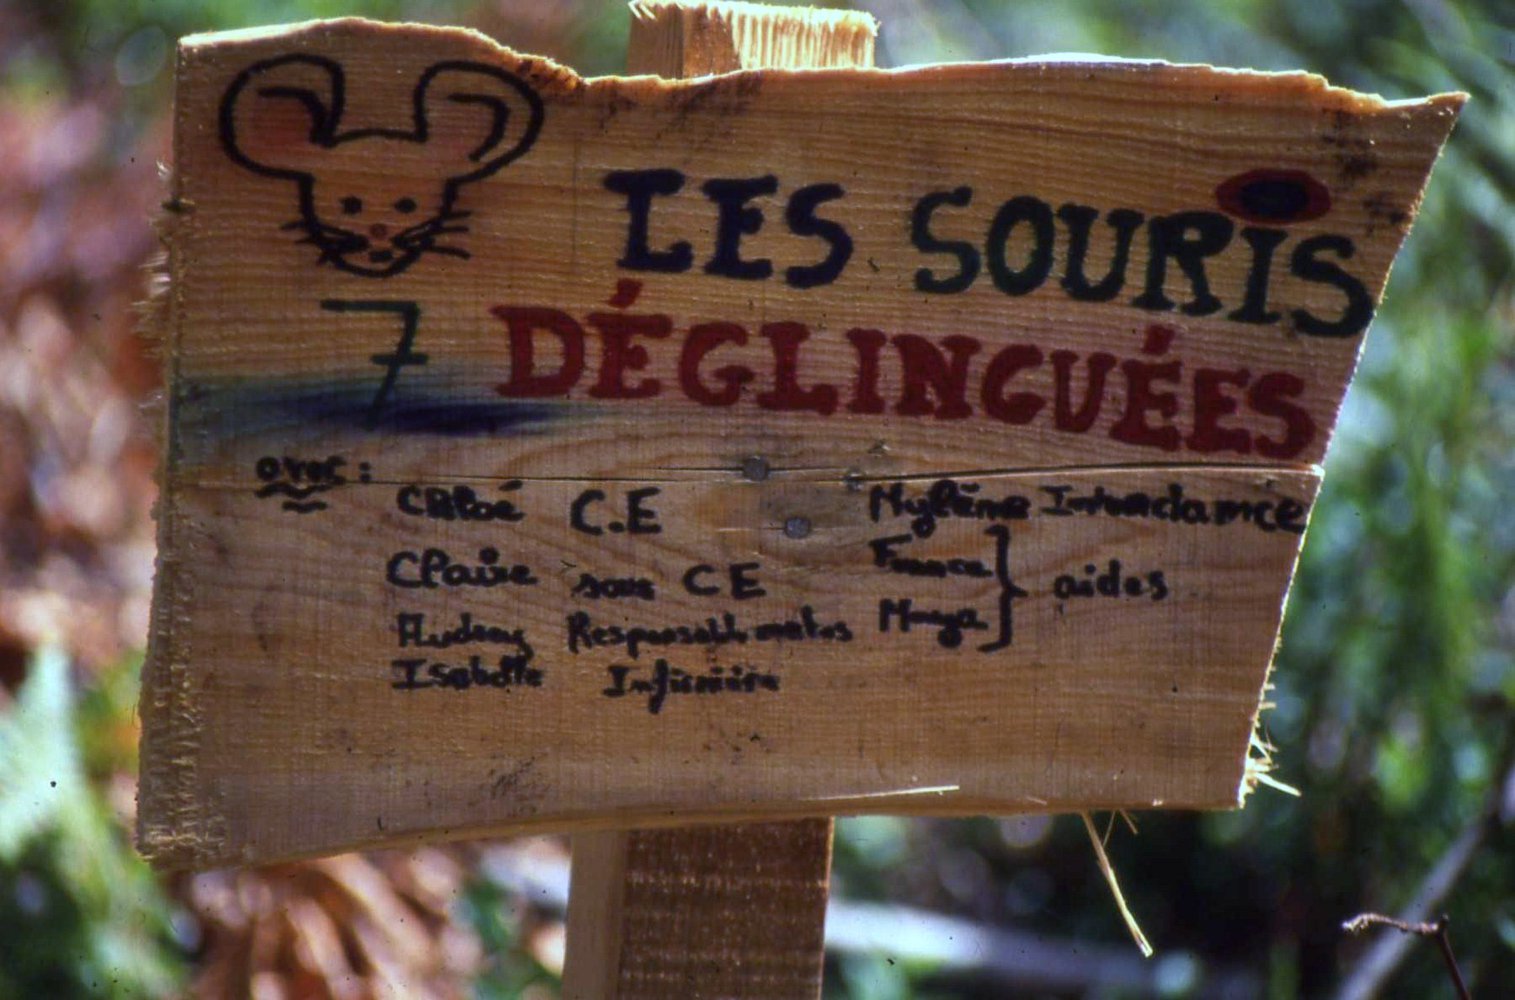 LES SOURIS
7 DÉGLINGUÉES
avec :
Chloé C.E
Claire sous CE
Audrey Responsable matos
Isabelle Infirmière
Mylène Intendance
France
Maya
aides